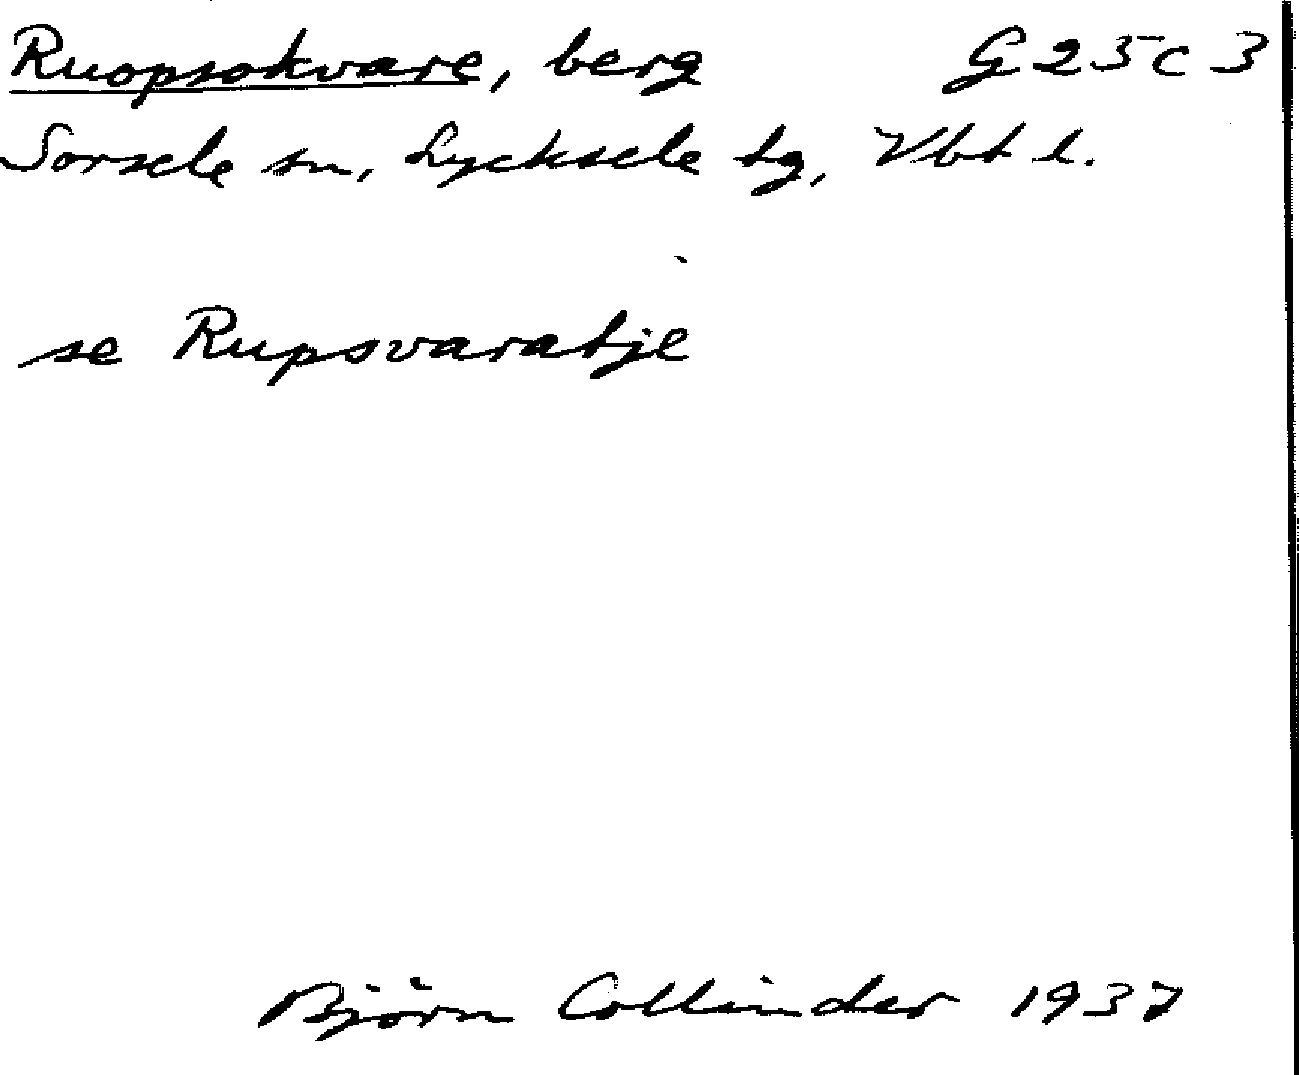 Ruopsokvare, berg G 25 c 3
Sorsele sn, Lycksele tg, Vbt l.
se Rupsvaratje
Björn Collinder 1937